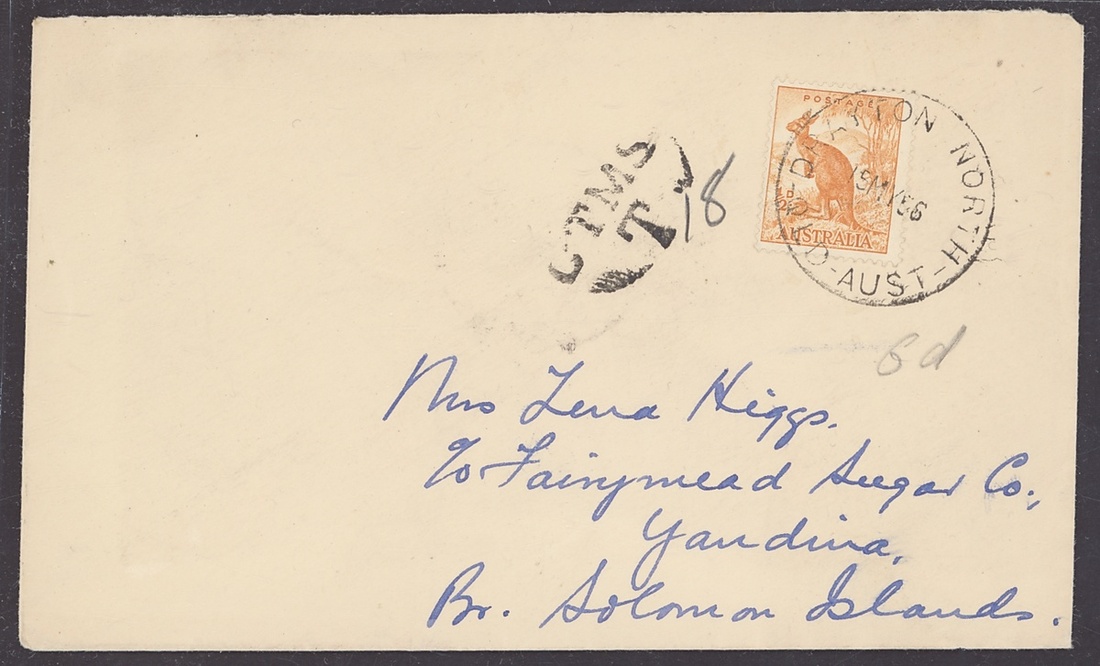 POSTAGE
½D
AUSTRALIA
DRAYTON NORTH
15MY56
QLD-AUST-
CTMS
T
18
6d
Mrs Lena Higgs.
c/o Fairymead Sugar Co.,
Yandina,
Br. Solomon Islands.